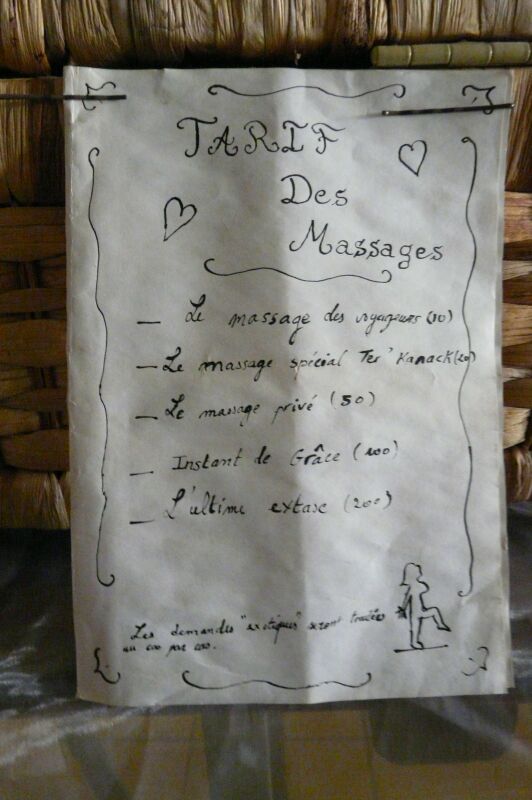 TARIF
Des
Massages
— Le massage des voyageurs (10)
— Le massage spécial Ter' Kanack (20)
— Le massage privé (50)
— Instant de Grâce (100)
— L'ultime extase (200)
Les demandes "exotiques" seront traitées
au cas par cas.